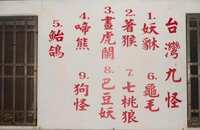 台灣九怪
1.妖獸
6.龜毛
2.著猴
7.七桃狼
3.畫虎闌
8.巴豆妖
4.啼熊
9.狗怪
5.鮐鴿